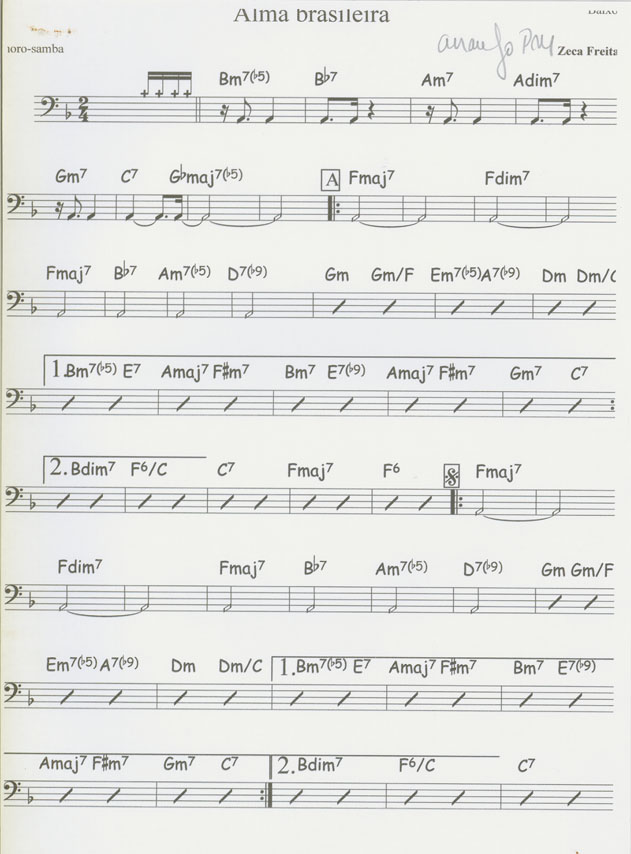 Alma brasileira
Baixo
horo-samba
Zeca Freita
2 4
Bm7(♭5) B♭7 Am7 Adim7
Gm7 C7 G♭maj7(♭5) A Fmaj7 Fdim7
Fmaj7 B♭7 Am7(♭5) D7(♭9) Gm Gm/F Em7(♭5)A7(♭9) Dm Dm/C
1.Bm7(♭5) E7 Amaj7 F#m7 Bm7 E7(♭9) Amaj7 F#m7 Gm7 C7
2. Bdim7 F6/C C7 Fmaj7 F6 Fmaj7
Fdim7 Fmaj7 B♭7 Am7(♭5) D7(♭9) Gm Gm/F
Em7(♭5) A7(♭9) Dm Dm/C 1.Bm7(♭5) E7 Amaj7 F#m7 Bm7 E7(♭9)
Amaj7 F#m7 Gm7 C7 2. Bdim7 F6/C C7